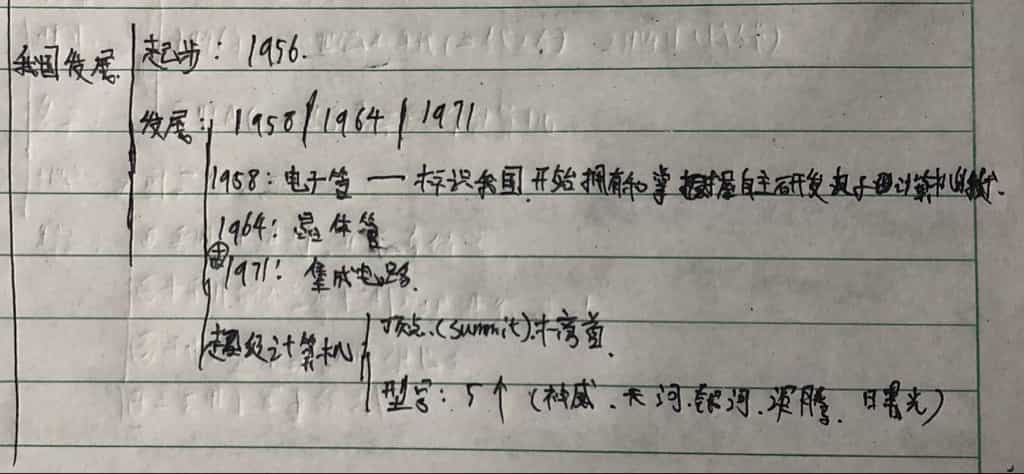 我国发展
起步：1956.
发展：1958/1964/1971
1958：电子管 — 标识我国开始拥有和掌握自主研发电子计算机的技术.
1964：晶体管
1971：集成电路.
超级计算机
顶点.(summit).榜首.
型号：5个（神威、天河、银河、深腾、曙光）